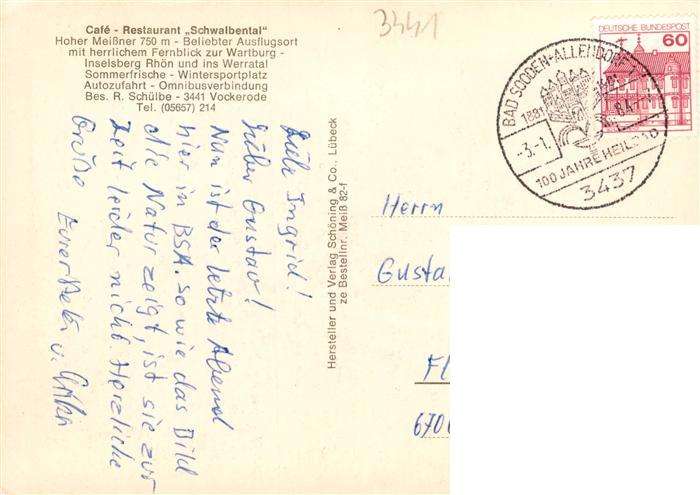 Café - Restaurant „Schwalbental"
Hoher Meißner 750 m - Beliebter Ausflugsort
mit herrlichem Fernblick zur Wartburg -
Inselsberg Rhön und ins Werratal
Sommerfrische - Wintersportplatz
Autozufahrt - Omnibusverbindung
Bes. R. Schülbe - 3441 Vockerode
Tel. (05657) 214
3441
DEUTSCHE BUNDESPOST
60
BAD SOODEN-ALLENDORF 1
1881
-3.-1.
100 JAHRE HEILBAD
3437
Liebe Ingrid!
Lieber Gustav!
Nun ist der letzte Abend
hier in BSA. so wie das Bild
die Natur zeigt, ist sie zur
Zeit leider nicht. Herzliche
Grüße Eure
Hersteller und Verlag Schöning & Co., Lübeck
ze Bestellnr. Meiß 82-f
Herrn
Gusta
Fl
6700